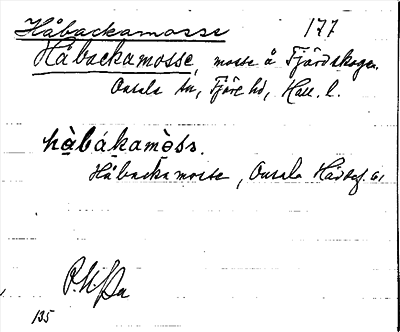 Håbackamosse 177
Håbackamosse, mosse å Fjärdskogen.
Onsala sn, Fjäre hd, Hall. l.
hàbákamòss.
Håbacka mosse, Onsala Hädsf. 61
135